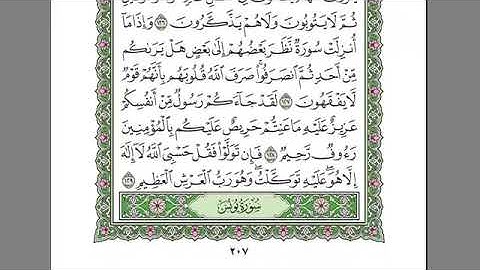 ثُمَّ لَا يَتُوبُونَ وَلَا هُمْ يَذَّكَّرُونَ ١٢٦ وَإِذَا مَا
أُنزِلَتْ سُورَةٌ نَّظَرَ بَعْضُهُمْ إِلَىٰ بَعْضٍ هَلْ يَرَىٰكُم
مِّنْ أَحَدٍ ثُمَّ ٱنصَرَفُوا۟ ۚ صَرَفَ ٱللَّهُ قُلُوبَهُم بِأَنَّهُمْ قَوْمٌ
لَّا يَفْقَهُونَ ١٢٧ لَقَدْ جَآءَكُمْ رَسُولٌ مِّنْ أَنفُسِكُمْ
عَزِيزٌ عَلَيْهِ مَا عَنِتُّمْ حَرِيصٌ عَلَيْكُم بِٱلْمُؤْمِنِينَ
رَءُوفٌ رَّحِيمٌ ١٢٨ فَإِن تَوَلَّوْا۟ فَقُلْ حَسْبِىَ ٱللَّهُ لَآ إِلَٰهَ
إِلَّا هُوَ ۖ عَلَيْهِ تَوَكَّلْتُ ۖ وَهُوَ رَبُّ ٱلْعَرْشِ ٱلْعَظِيمِ ١٢٩
سُورَةُ يُونُسَ
٢٠٧